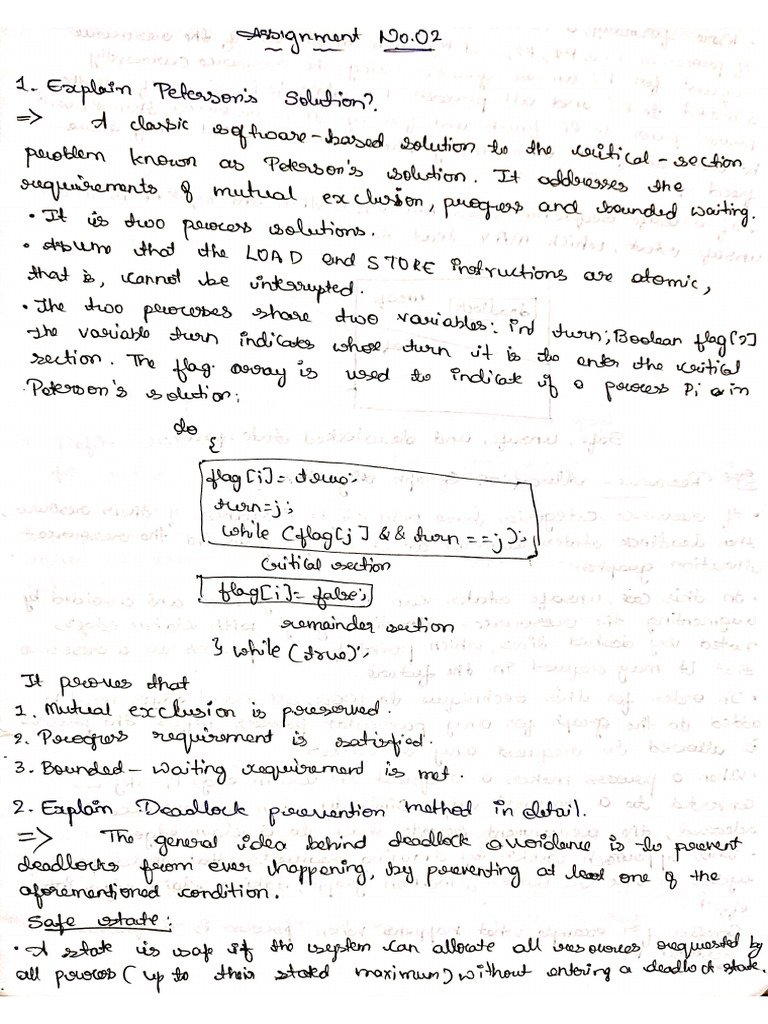 Assignment No.02
1. Explain Peterson's Solution?.
=> A classic software-based solution to the critical-section
problem known as Peterson's solution. It addresses the
requirements of mutual exclusion, progress and bounded waiting.
• It is two process solutions.
• Assume that the LOAD and STORE instructions are atomic,
that is, cannot be interrupted.
• The two processes share two variables: int turn; Boolean flag[2]
The variable turn indicates whose turn it is to enter the critical
section. The flag array is used to indicate if a process Pi is in
Peterson's solution;
do
{
flag[i]= true;
turn=j;
while (flag[j] && turn ==j);
critical section
flag[i]= false;
remainder section
} while (true);
It proves that
1. Mutual exclusion is preserved.
2. Progress requirement is satisfied.
3. Bounded-waiting requirement is met.
2. Explain Deadlock prevention method in detail.
=> The general idea behind deadlock avoidance is to prevent
deadlocks from ever happening, by preventing at least one of the
aforementioned condition.
Safe state:
• A state is safe if the system can allocate all resources requested by
all process (up to their stated maximum) without entering a deadlock state.